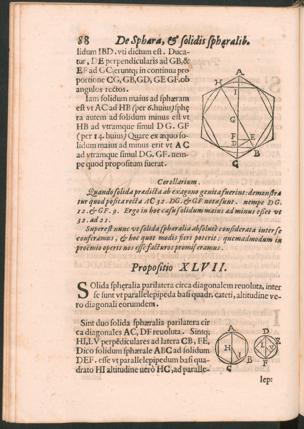 88 De Sphæra, & solidis sphæralib.
lidum IBD. vti dictum est. Duca-
tur, DE perpendicularis ad GB, &
EF ad GC; erunt in continua pro
portione CG, GB, GD, GE GF. ob
angulos rectos.
Iam solidum maius ad sphæram
est vt AC ad HB (per 6. huius) sphę
ra autem ad solidum minus est vt
HB ad vtramque simul DG. GF
(per 14. huius) Quare ex æquo so-
lidum maius ad minus erit vt AC
ad vtramque simul DG. GF. nem-
pe quod propositum fuerat.
A
H
I
G
F
D
E
B
C
Corollarium.
Quando solida prædicta ab exagono genita fuerint: demonstra
tur quod posita recta AC 32. DG. & GF. notæ sunt. nempe DG.
12. & GF. 9. Ergo in hoc casu solidum maius ad minus esset vt
32. ad 21.
Superest nunc vt solida sphæralia absolutè considerata inter se
conferamus, & hoc quot modis fieri poterit: quemadmodum in
proœmio operis nos esse facturos promiseramus.
Propositio XLVII.
Solida sphæralia parilatera circa diagonalem reuoluta, inter
se sunt vt parallelepipeda basi quadr. cateti, altitudine ve-
ro diagonali eorundem.
Sint duo solida sphæralia parilatera cir
ca diagonales AC, DF reuoluta. Sintq;
HI, LV perpẽdiculares ad latera CB, FE,
Dico solidum sphærale ABC ad solidum
DEF. esse vt parallelepipedum basi qua-
drato HI altitudine uerò HC, ad paralle-
A
H
I
B
C
D
E
F
lep: